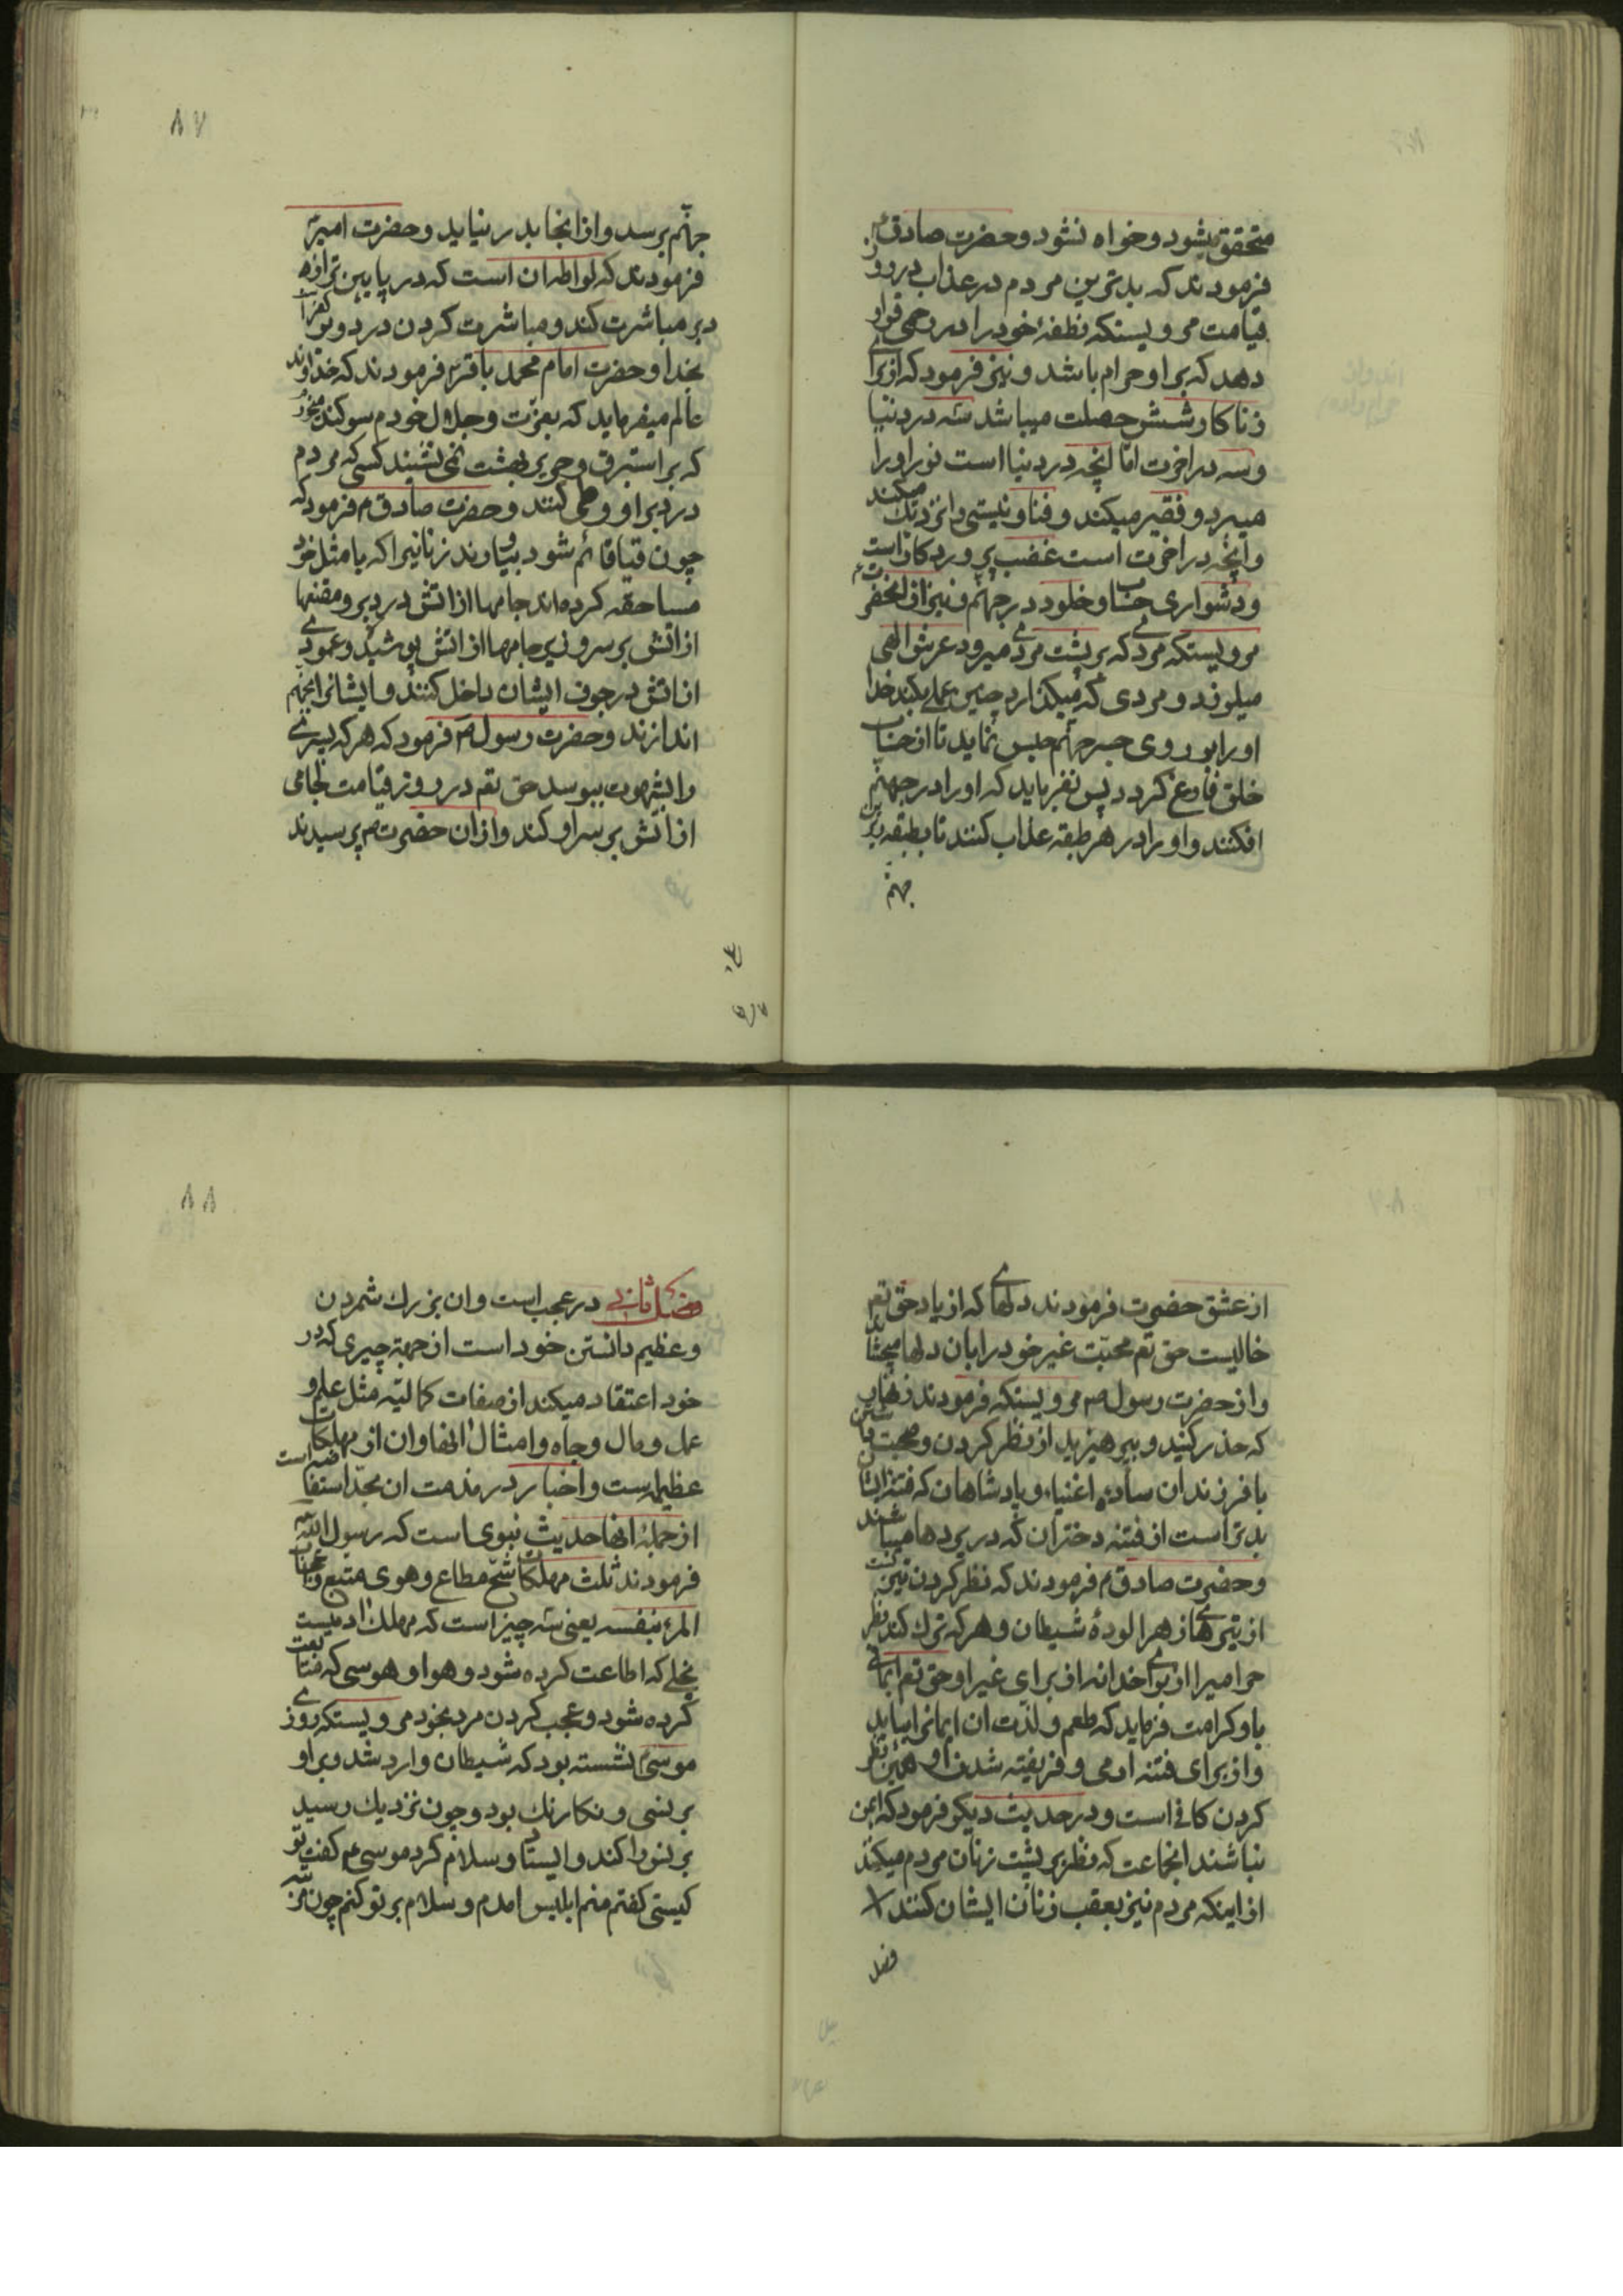 متحقق بشود و خواه نشود و حضرت صادق ع
فرمودند که بدترین مردم در عذاب در روز
قیامت مرویستکه نطفهٔ خود را در رحمی قرار
دهد که بر او حرام باشد و نیز فرمود که از برای
زناکار شش خصلت میباشد سه در دنیا
و سه در اخرت اما انچه در دنیا است نور او را
میبرد و فقیر میکند و فنا و نیستی را نزدیک میکند
و انچه در اخرت است غضب پروردکار است
و دشواری حساب و خلود در جهنم و نیز از انحضرت ع
مرویستکه مردی که بر پشت مردی میرود عرش الهی
میلرزد و مردی که میکذارد چنین عملی بکند خدا
او را بر روی جسر جهنم حبس نماید تا از حساب
خلق فارغ کردد پس بفرماید که او را در جهنم
افکنند و او را در هر طبقه عذاب کنند تا بطبقه زیرین
جهنم
۸۷
جهنم برسد و از انجا بدر نیاید و حضرت امیر ع
فرمودند که لواط ان است که در پایین تر از
دبر مباشرت کند و مباشرت کردن در دبر کفر است
بخدا و حضرت امام محمد باقر ع فرمودند که خداوند
عالم میفرماید که بعزت و جلال خودم سوکند میخورم
که بر استبرق و حریر بهشت نمی نشیند کسی که مردم
در دبر او وطی کنند و حضرت صادق ع فرمود که
چون قیامة قائم شود بیاورند زنانیرا که با مثل خود
مساحقه کرده‌اند جامها از اتش در بر و مقنعها
از اتش بر سر و زیر جامها از اتش پوشیده و عمودی
از اتش در جوف ایشان داخل کنند و ایشانرا بجهنم
اندازند و حضرت رسول ص فرمود که هر که پسری
را بشهوت ببوسد حق تعم در روز قیامت لجامی
از اتش بر سر او کند و از ان حضرت ص پرسیدند
از عشق حضرت فرمودند دلهای که از یاد حق تعم
خالیست حق تعم محبت غیر خود را بان دلها میچشاند
و از حضرت رسول ص مرویستکه فرمودند زنهار
که حذر کنید و بپرهیزید از نظر کردن و صحبت داشتن
با فرزندان ساده اغنیاء و پادشاهان که فتنه ایشان
بدتر است از فتنه دختران که در پردها میباشند
و حضرت صادق ع فرمودند که نظر کردن تیریست
از تیرهای زهر الودهٔ شیطان و هر که ترک کند نظر
حرامیرا از برای خدا نه از برای غیر او حق تعم ایمانی
باو کرامت فرماید که طعم و لذت ان ایمانرا بیابد
و از برای فتنه ادمی و فریفته شدن او همین نظر
کردن کافی است و در حدیث دیکر فرمود که ایمن
نباشند انجماعت که نظر بر پشت زنان مردم میکنند
از اینکه مردم نیز بعقب زنان ایشان کنند
فصل
۸۸
فصل ثانی در عجب است و ان بزرک شمردن
و عظیم دانستن خود است از جهة چیزی که در
خود اعتقاد میکند از صفات کمالیّه مثل علم و
عمل و مال و جاه و امثال انها و ان از مهلکات
عظیمه است و اخبار در مذمت ان بحد استفاضه است
از جمله انها حدیث نبوی است که رسول الله ص
فرمودند ثلث مهلکات شح مطاع و هوی متبع و اعجاب
المرء بنفسه یعنی سه چیز است که مهلک ادمیست
بخلی که اطاعت کرده شود و هوا و هوسی که متابعت
کرده شود و عجب کردن مرد بخود مرویستکه روزی
موسی ع نشسته بود که شیطان وارد شد و بر او
برنسی رنکارنک بود و چون نزدیک رسید
برنس را کند و ایستاد و سلام کرد موسی ع کفت تو
کیستی کفتم منم ابلیس امدم و سلام بر تو کنم چون